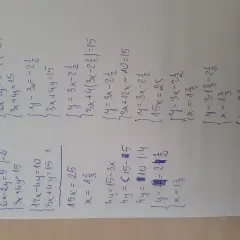 {6x-2y=5 |·2
3x+4y=15
{12x-4y=10
3x+4y=15 +
15x = 25
x = 1 2/3
4y=15-3x
4y=15-5
4y=10 |:4
{y=2 1/2
x=1 2/3
3x+4y=15
{y-3x=-2 1/2
3x+4y=15
{y=3x-2 1/2
3x+4(3x-2 1/2)=15
{y=3x-2 1/2
3x+12x-10=15
{y=3x-2 1/2
15x=25
{y=3x-2 1/2
x=1 2/3
{y=3·1 2/3-2 1/2